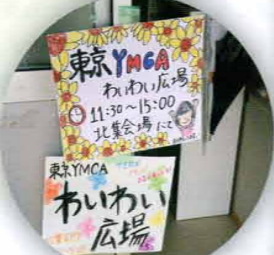 東京YMCA
わいわい広場
11:30〜15:00
北集会場にて
東京YMCA
わいわい
広場